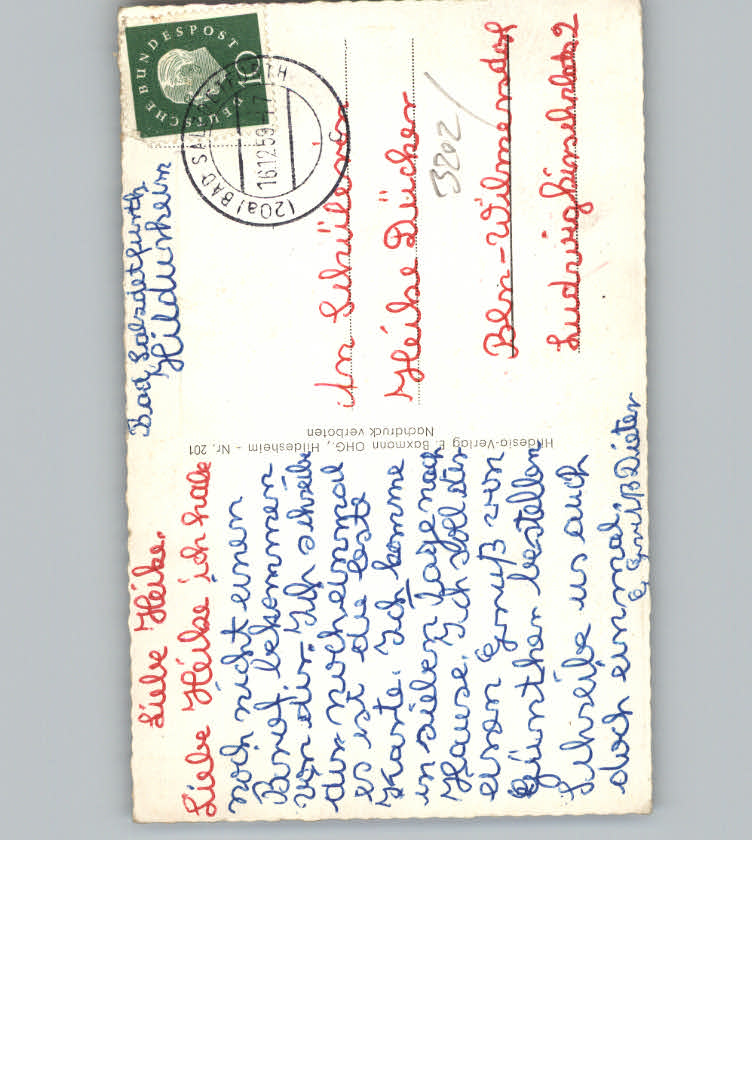 Liebe Heike.
Liebe Heike ich habe
noch nicht einen
Brief bekommen
von dir. Ich schreibe
dir nocheinmal
es ist die leste
Karte. Ich komme
in sieben Tage nach
Hause. Ich soll dir
einen Gruß von
Günther bestellen
Schreibe us auch
doch einmal.
Gruß Dieter
Hildesia-Verlag E. Baxmann OHG., Hildesheim - Nr. 201
Nachdruck verboten
Bad Salzdetfurth
Hildesheim
DEUTSCHE BUNDESPOST
10
(20a) BAD SALZDETFURTH
16.12.59
An Schülerin
Heike Dücker
3202
Bln-Wilmersdorf
Ludwigkirchplatz 2